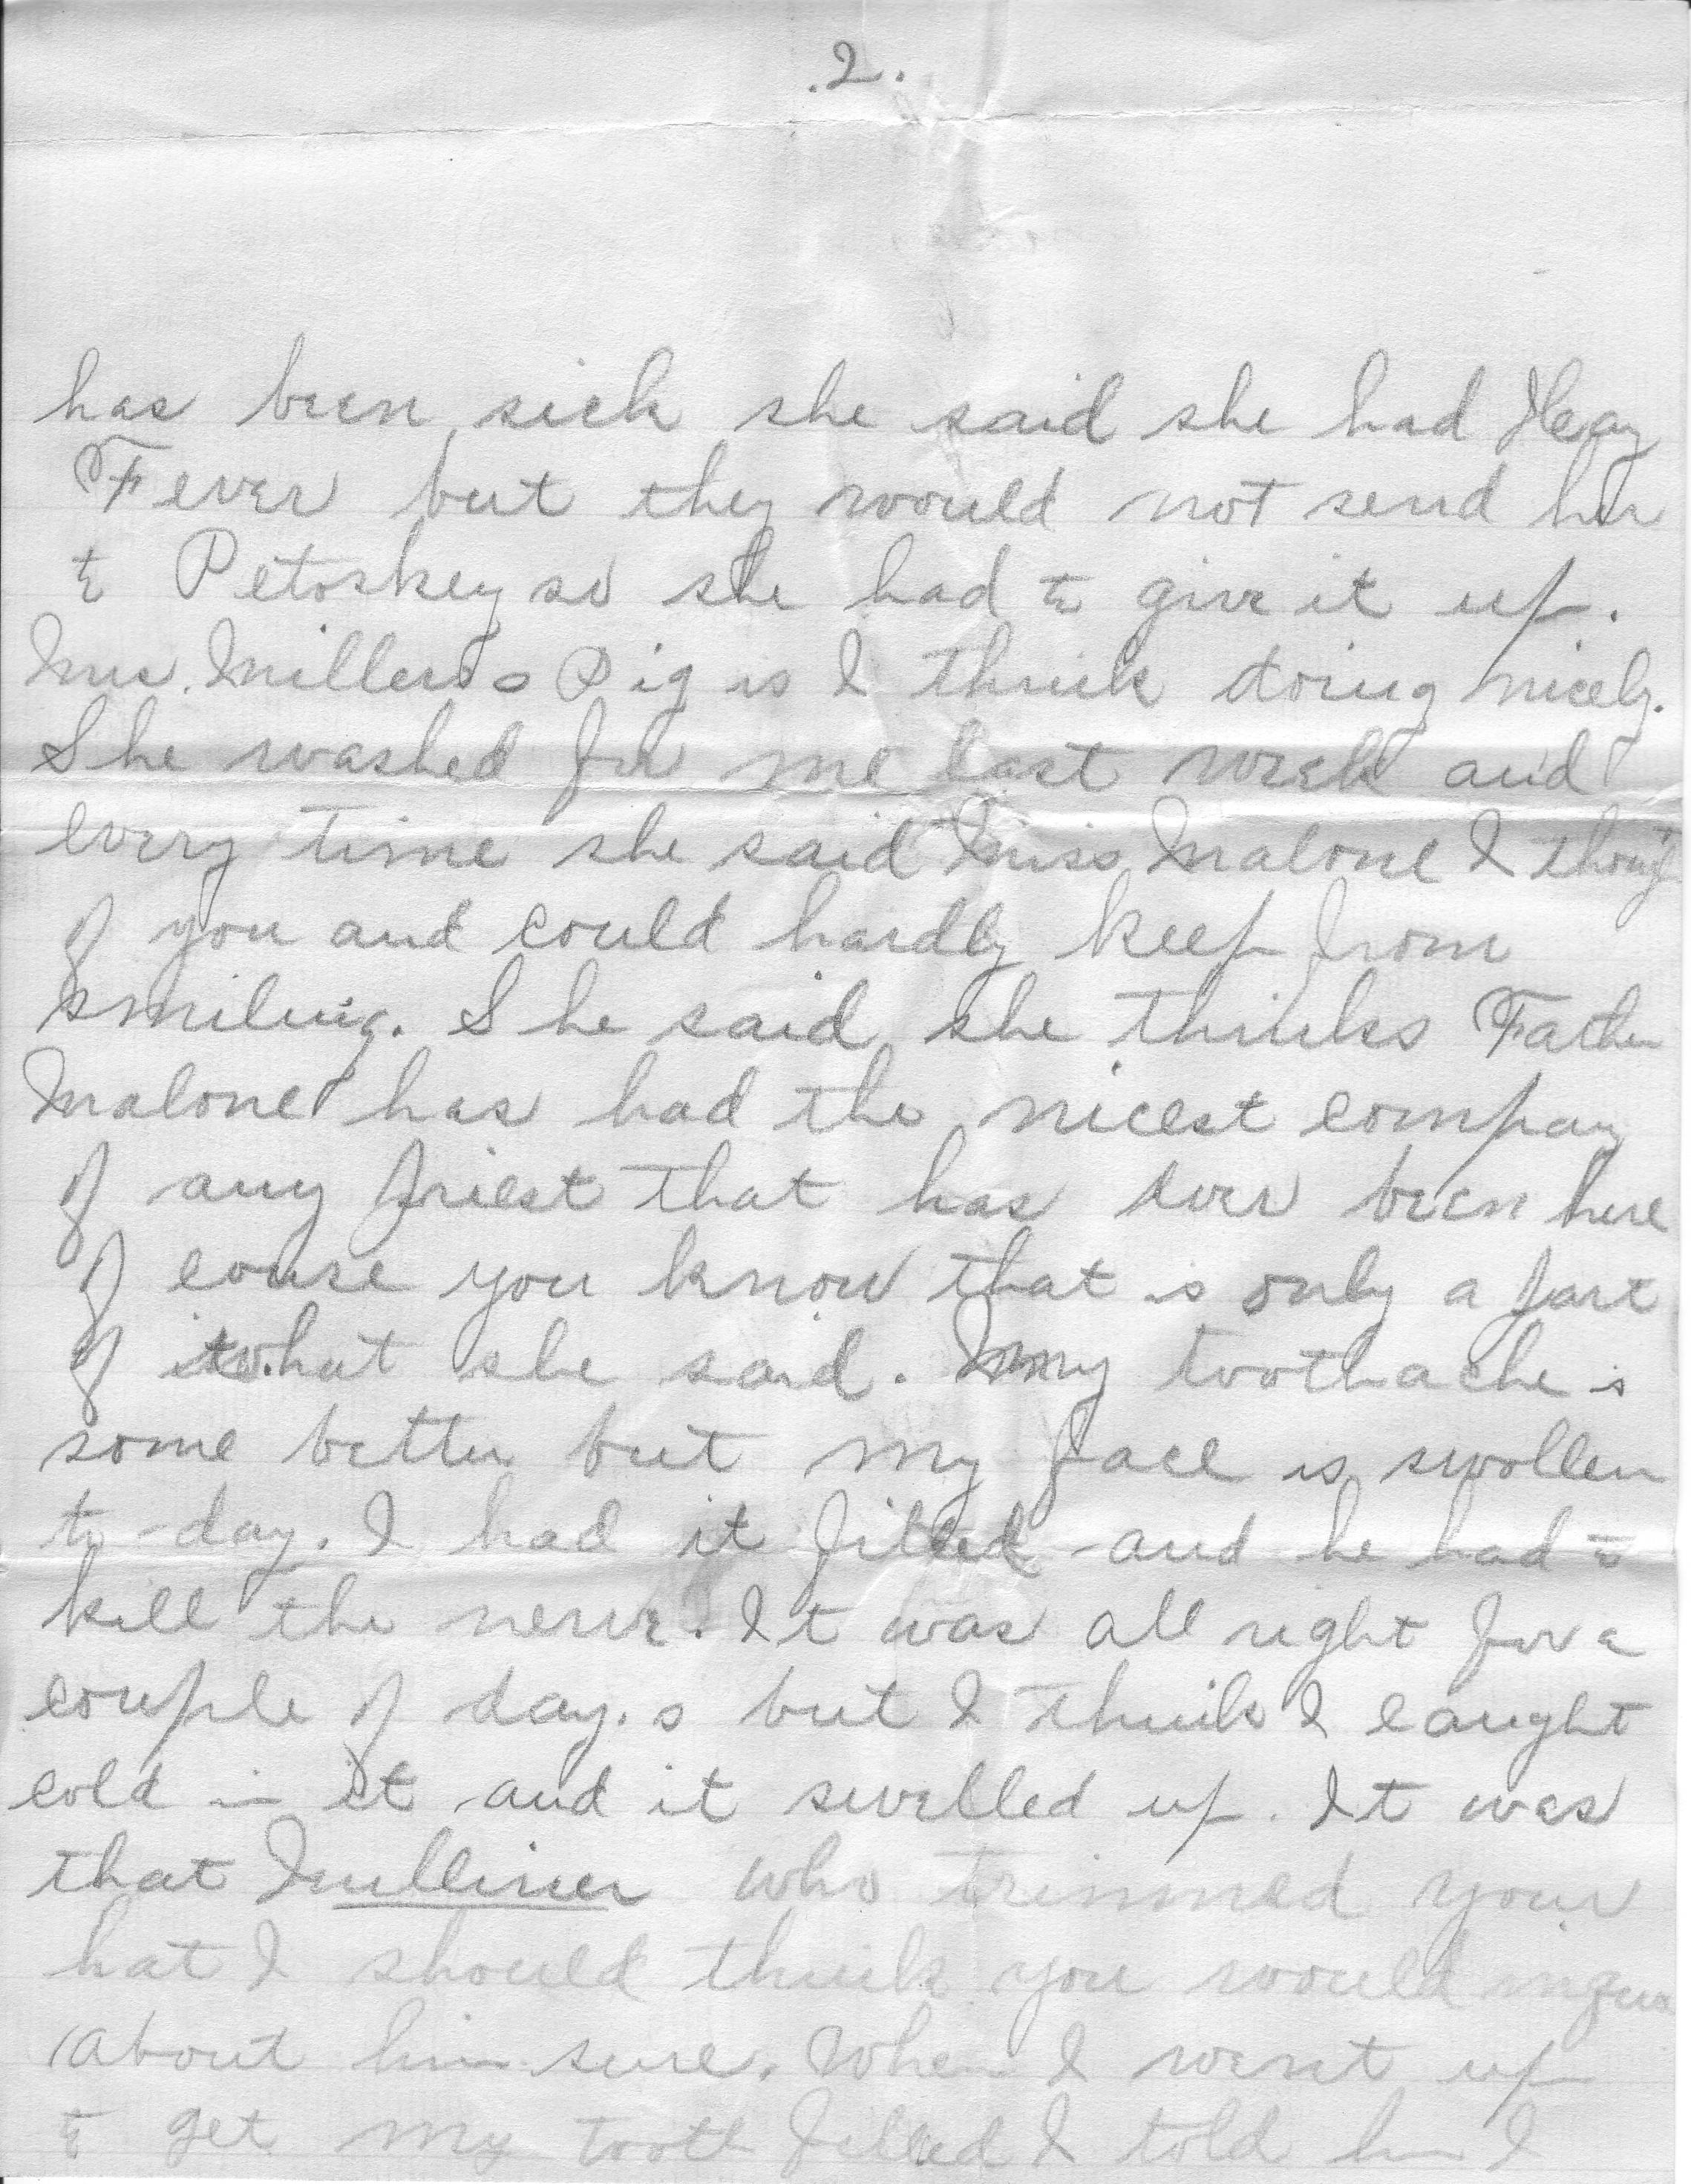 .2.
has been sick she said she had Hay
Fever but they would not send her
to Petoskey so she had to give it up.
Mrs. Millers Pig is I think doing nicely.
She washed for me last week and
every time she said Miss Malone I thoug
of you and could hardly keep from
smiling. She said she thinks Father
Malone has had the nicest company
of any priest that has ever been here
of course you know that is only a part
of what she said. My toothache is
some better but my face is swollen
to-day. I had it filled and he had to
kill the nerve. It was all right for a
couple of day.s but I think I caught
cold in it and it swelled up. It was
that Mulliner who trimmed your
hat I should think you would
about him sure. When I went up
to get my tooth filled I told him I